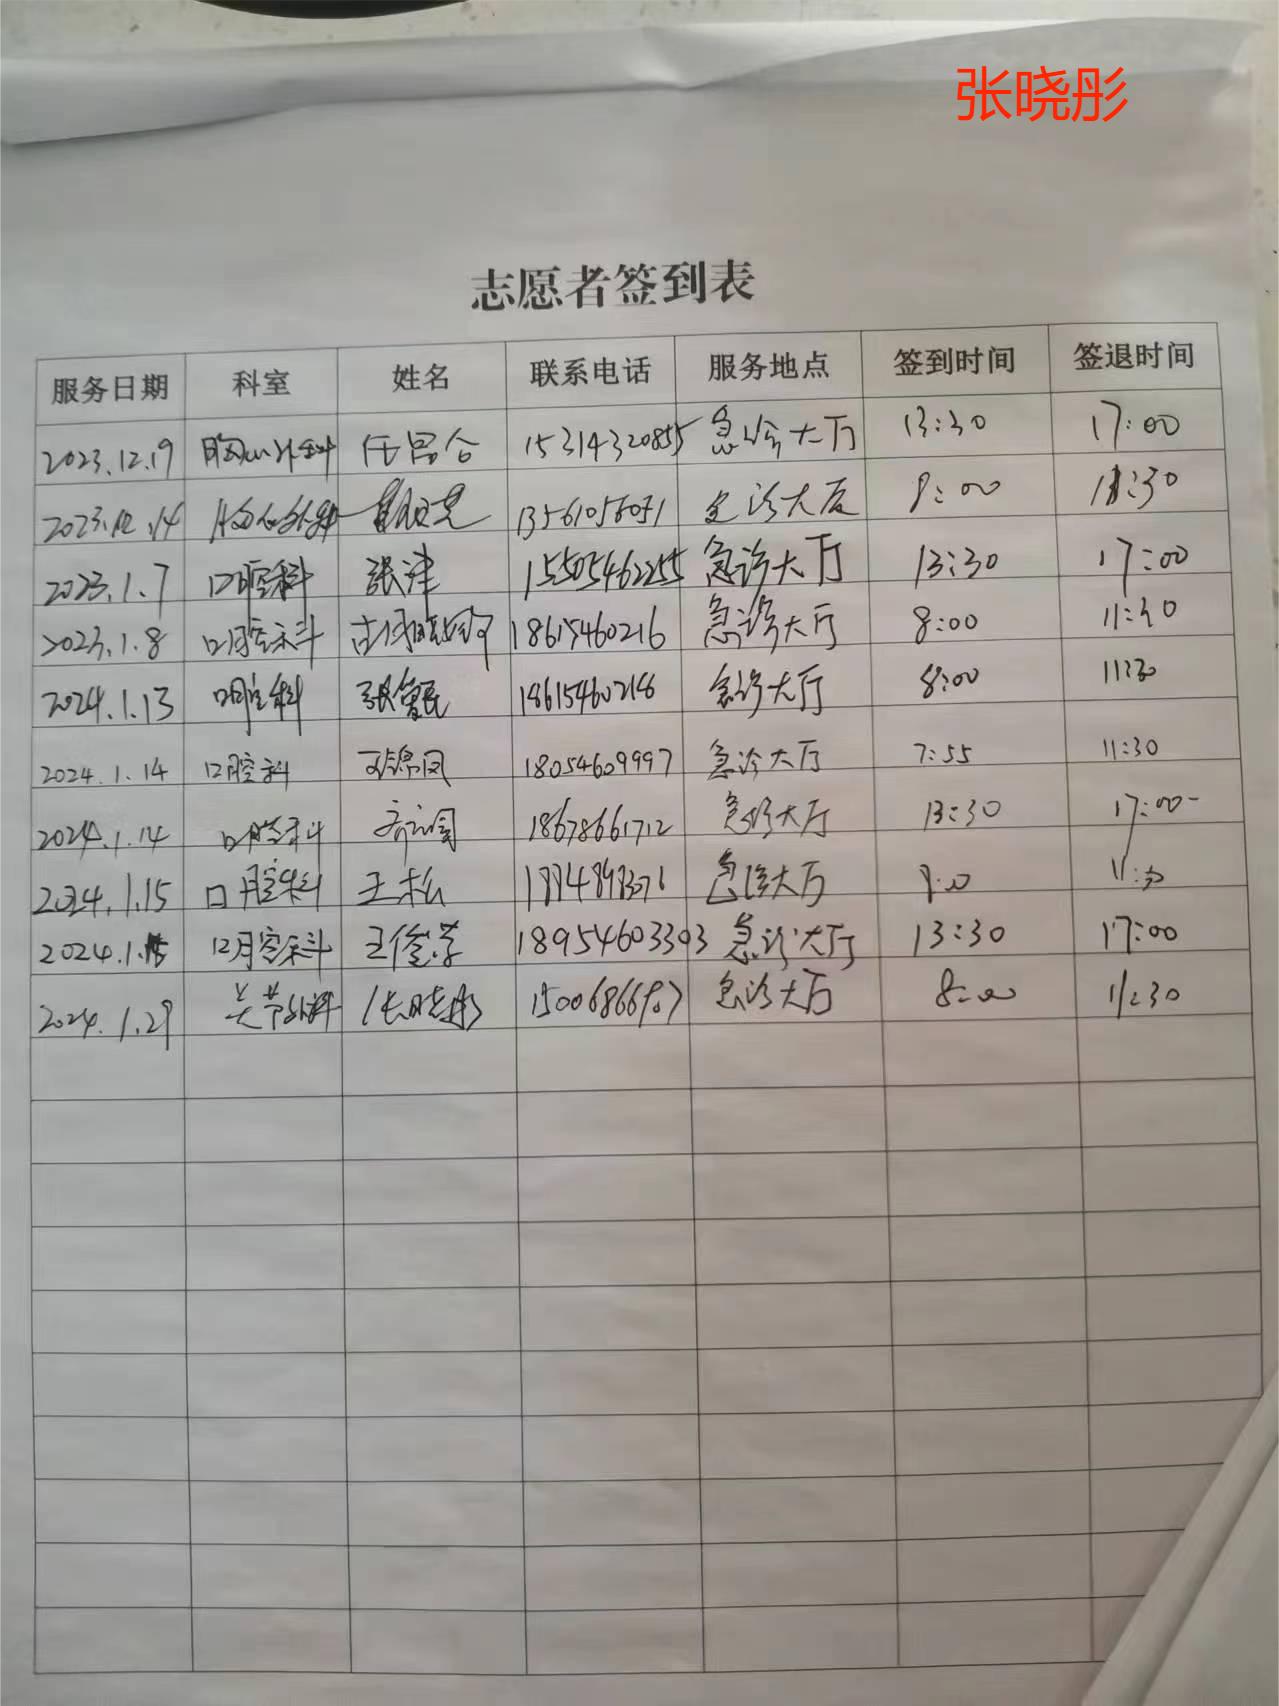 张晓彤
志愿者签到表
服务日期 科室 姓名 联系电话 服务地点 签到时间 签退时间
2023.12.19 胸心外科 任昌合 15314320855 急诊大厅 13:30 17:00
2023.12.14 13561056051 急诊大厅 8:00 11:30
2023.1.7 口腔科 张津 15505462255 急诊大厅 13:30 17:00
2023.1.8 口腔科 18615460216 急诊大厅 8:00 11:30
2024.1.13 口腔科 张鲁民 18615460216 急诊大厅 8:00 11:30
2024.1.14 口腔科 孙锦凤 18054609997 急诊大厅 7:55 11:30
2024.1.14 口腔科 18678661712 急诊大厅 13:30 17:00
2024.1.15 口腔科 王松 急诊大厅 8:00 11:30
2024.1.15 口腔科 王俊学 18954603303 急诊大厅 13:30 17:00
2024.1.29 关节外科 张晓彤 15006866987 急诊大厅 8:00 11:30